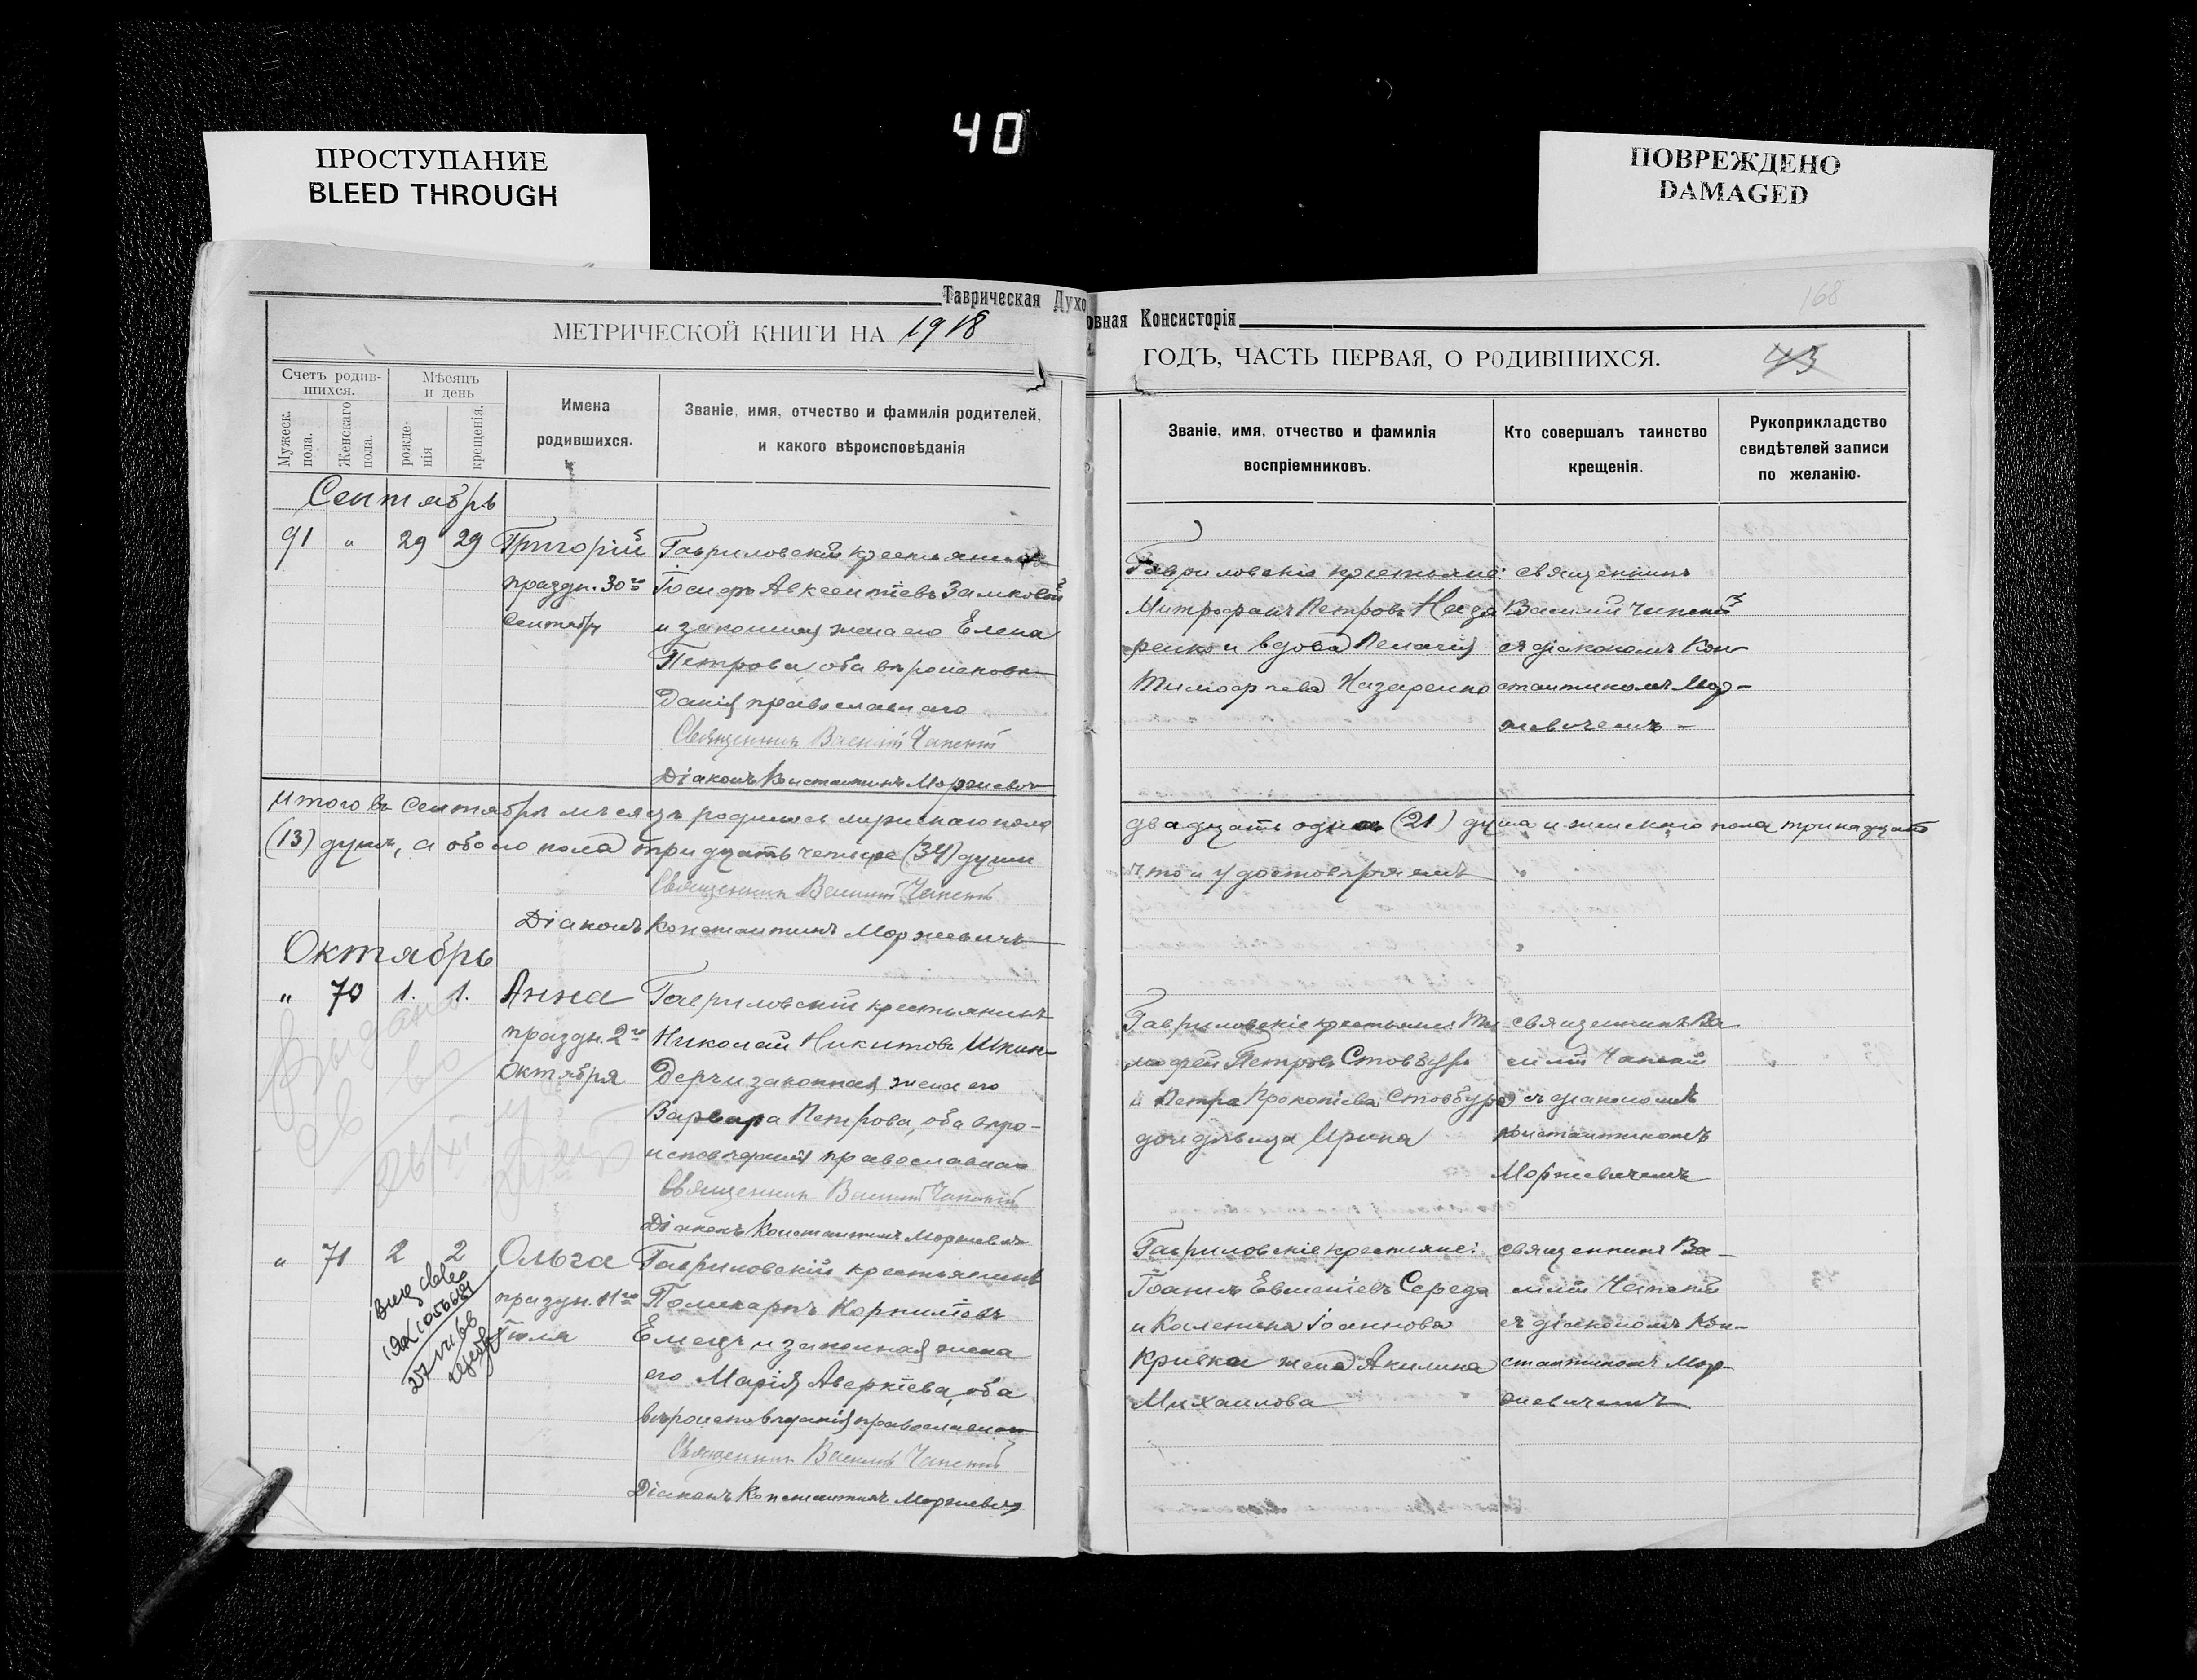 40
ПРОСТУПАНИЕ
BLEED THROUGH
ПОВРЕЖДЕНО
DAMAGED
Таврическая Духовная Консисторія
168
МЕТРИЧЕСКОЙ КНИГИ НА 1918
ГОДЪ, ЧАСТЬ ПЕРВАЯ, О РОДИВШИХСЯ.
43
Счетъ родив-
шихся.
Мужеск.
пола.
Женскаго
пола.
Мѣсяцъ
и день
рожде-
нія
крещенія.
Имена
родившихся.
Званіе, имя, отчество и фамилія родителей,
и какого вѣроисповѣданія
Званіе, имя, отчество и фамилія
воспріемниковъ.
Кто совершалъ таинство
крещенія.
Рукоприкладство
свидѣтелей записи
по желанію.
Сентябрь
91 " 29 29 Григорій
праздн. 30го
Сентября
Гавриловскій крестьянинъ
Іосифъ Авксентіевъ Замковой
и законная жена его Елена
Петрова, оба вѣроисповѣ-
данія православнаго
Священникъ Василій Чапскій
Діаконъ Константинъ Моржевичъ
Гавриловскіе крестьяне:
Митрофанъ Петровъ Наза
ренко и вдова Пелагія
Тимофеева Назаренко
священникъ
Василій Чапскій
съ діакономъ Кон-
стантиномъ Мор-
жевичемъ
Итого въ Сентябрѣ мѣсяцѣ родилось мужскаго пола
двадцать одна (21) душа и женскаго пола тринадцать
(13) душъ, а обоего пола тридцать четыре (34) души
что и удостовѣряемъ
Священникъ Василій Чапскій
Діаконъ Константинъ Моржевичъ
Октябрь
" 70 1. 1. Анна
праздн. 2го
Октября
Гавриловскій крестьянинъ
Николай Никитовъ Шкин-
деръ и законная жена его
Варвара Петрова, оба вѣро-
исповѣданія православнаго
Священникъ Василій Чапскій
Діаконъ Константинъ Моржевичъ
Гавриловскіе крестьяне: Ти
мофей Петровъ Стовбуръ
и Петра Прокопіева Стовбура
дочь дѣвица Ирина
священникъ Ва
силій Чапскій
съ діакономъ
Константиномъ
Моржевичемъ
" 71 2 2 Ольга
праздн. 11го
Іюля
Гавриловскій крестьянинъ
Поликарпъ Корниліевъ
Емецъ и законная жена
его Марія Аверкіева, оба
вѣроисповѣданія православнаго
Священникъ Василій Чапскій
Діаконъ Константинъ Моржевичъ
Гавриловскіе крестьяне:
Іоаннъ Евменіевъ Середа
и Каленика Іоаннова
Кривка жена Акилина
Михаилова
священникъ Ва-
силій Чапскій
съ діакономъ Кон-
стантиномъ Мор-
жевичемъ